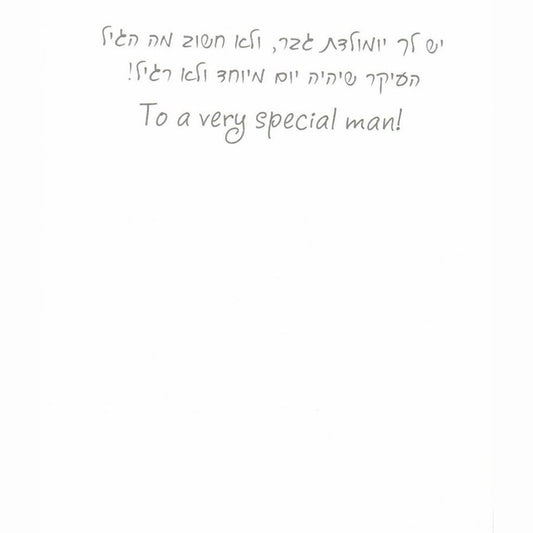 יש לך יומולדת גבר, ולא חשוב מה הגיל
העיקר שיהיה יום מיוחד ולא רגיל!
To a very special man!